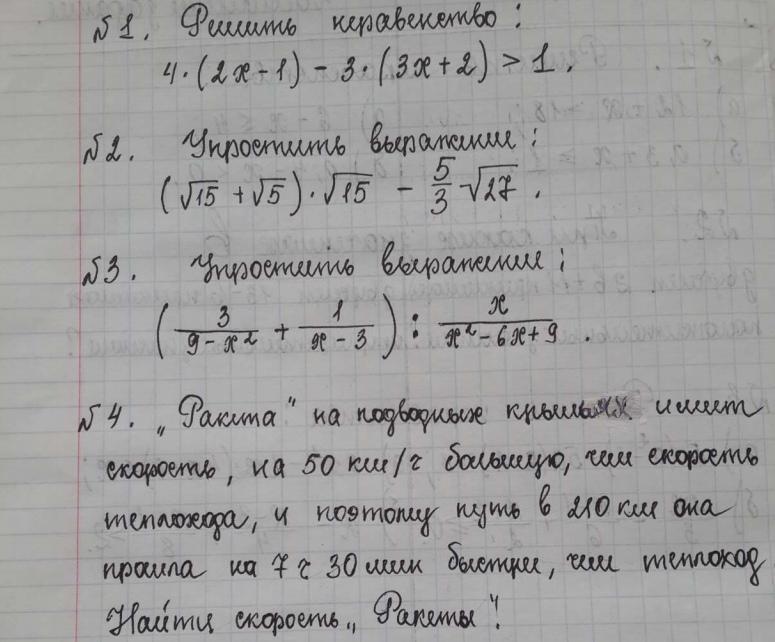 №1. Решить неравенство:
4·(2x-1) - 3·(3x+2) > 1.
№2. Упростить выражение:
(√15 + √5)·√15 - 5/3 √27.
№3. Упростить выражение:
(3/(9-x²) + 1/(x-3)) : x/(x²-6x+9).
№4. „Ракета" на подводных крыльях имеет
скорость, на 50 км/ч большую, чем скорость
теплохода, и поэтому путь в 210 км она
прошла на 7 ч 30 мин быстрее, чем теплоход
Найти скорость „Ракеты"!